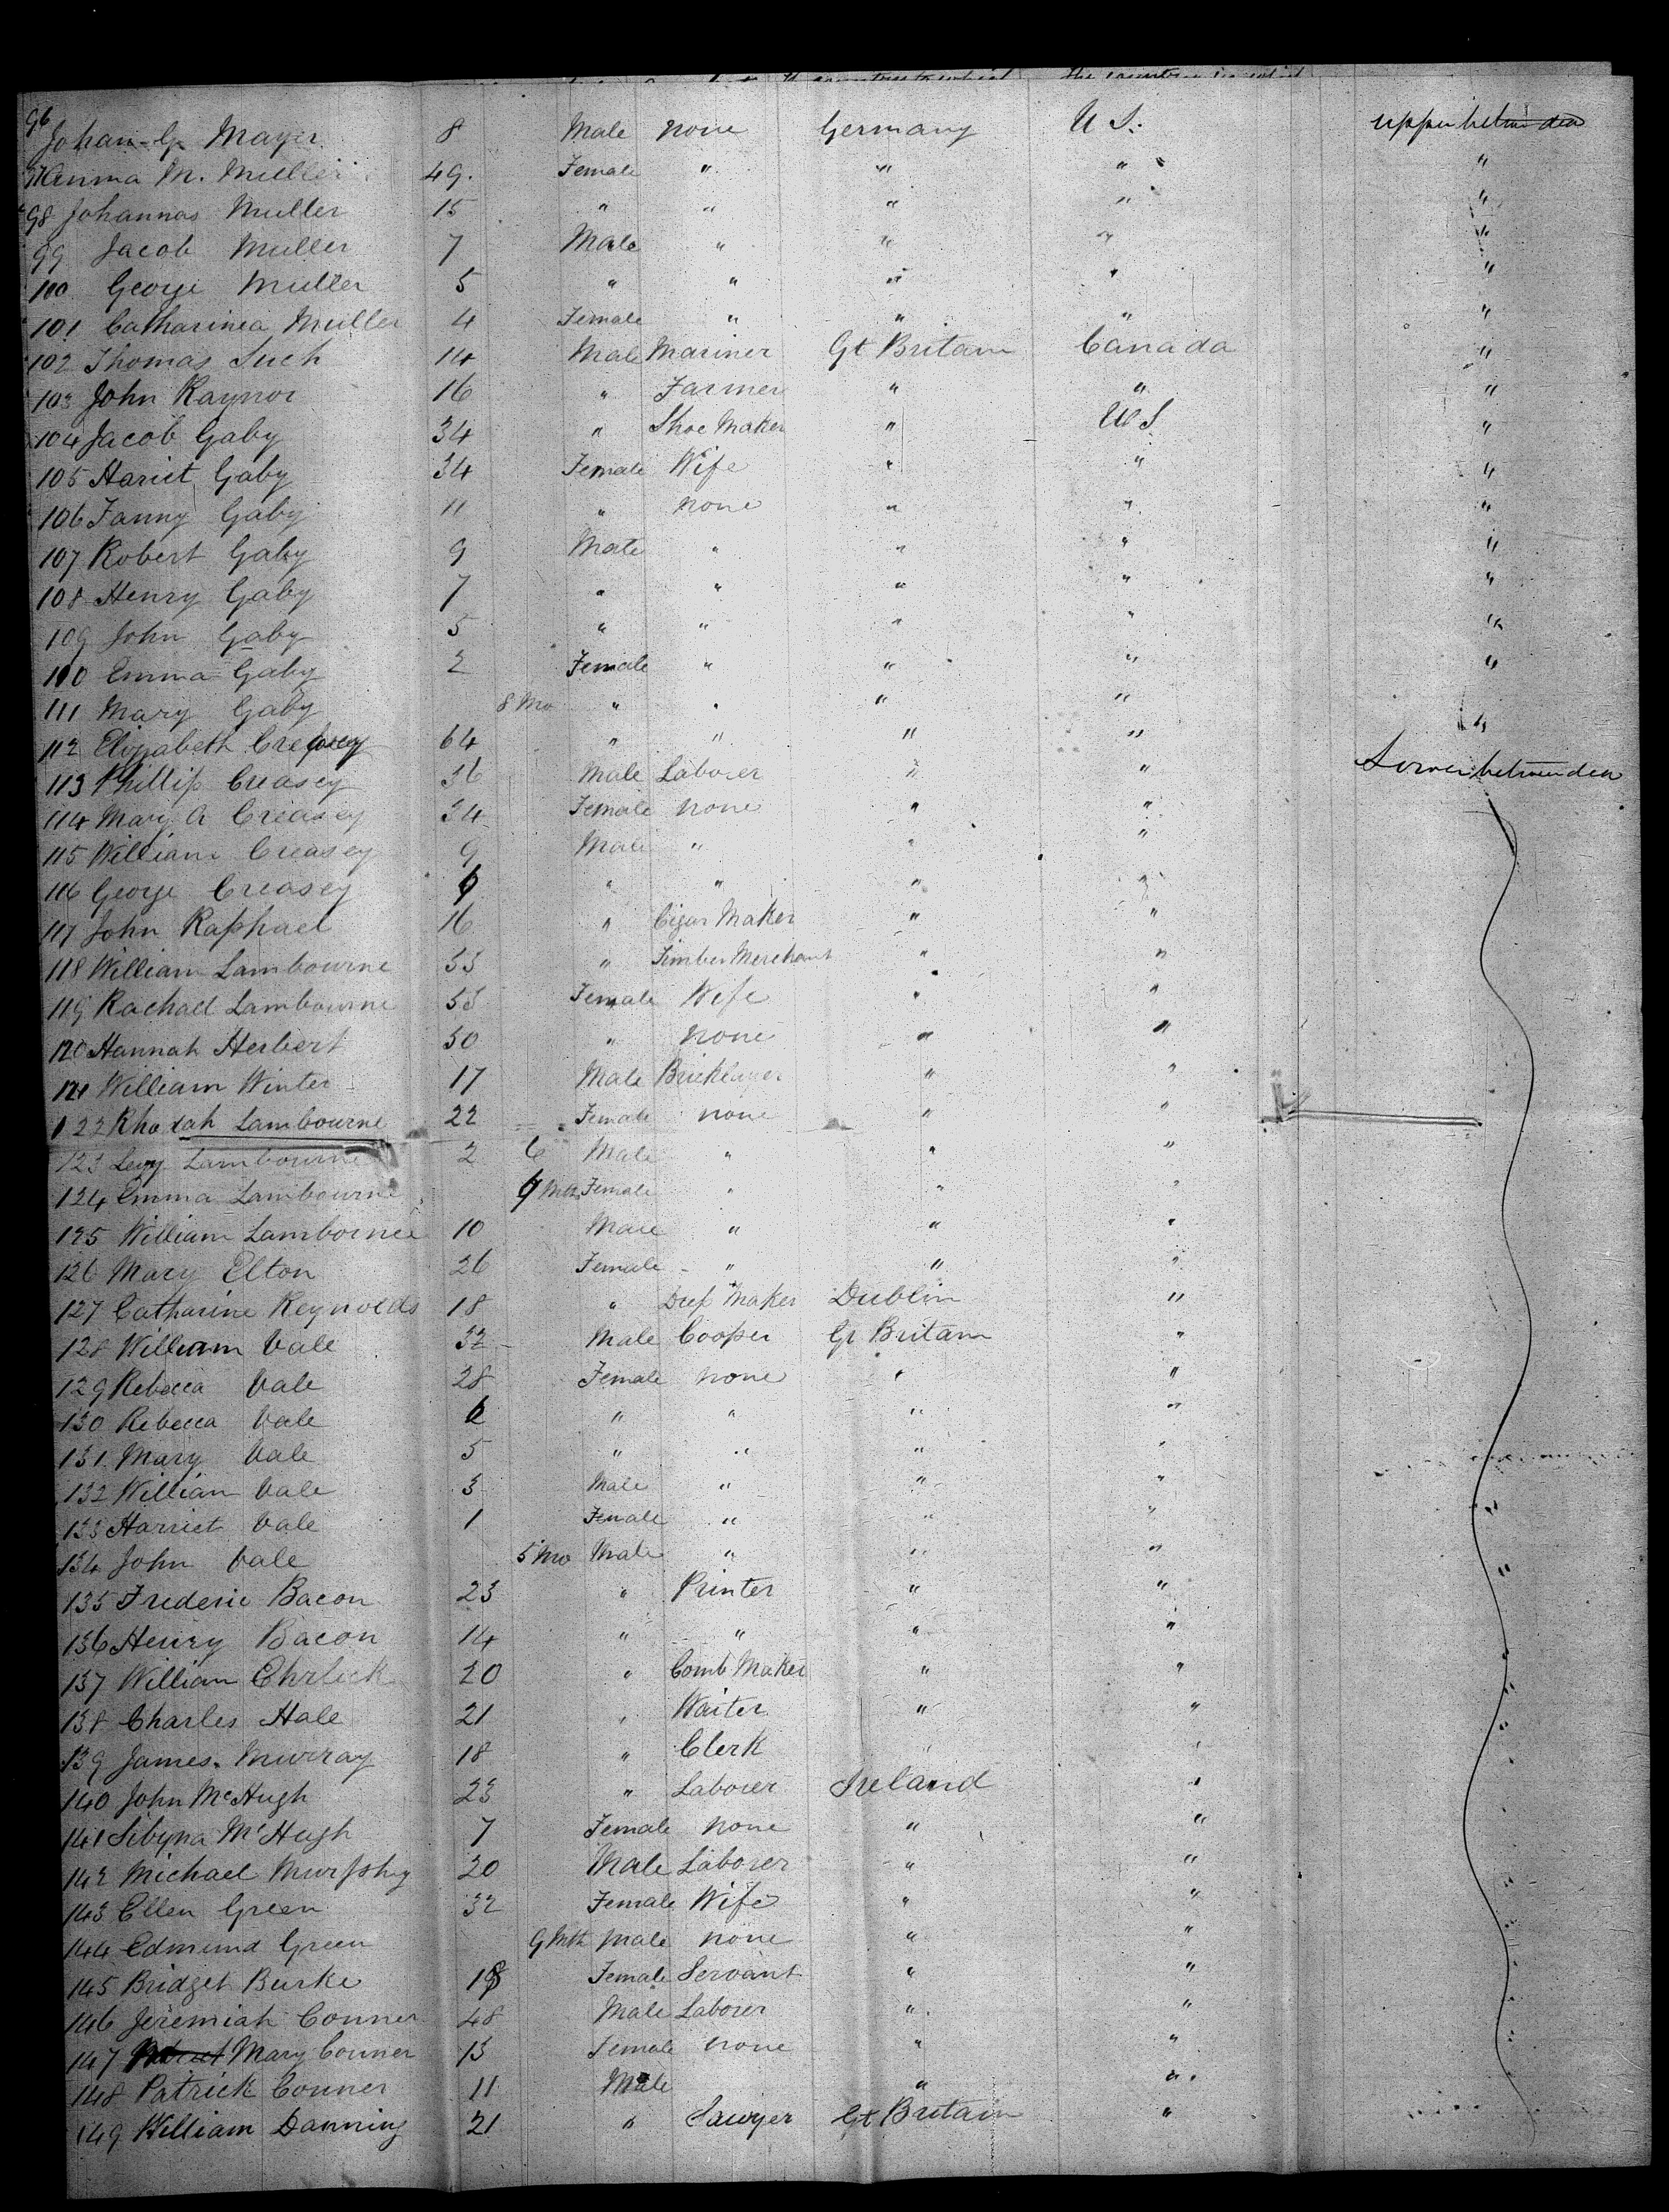 96 Johan G Mayer 8 Male none Germany U S. upper between den
97 Anna M. Muller 49. Female " " " "
98 Johannas Muller 15 " " " " "
99 Jacob Muller 7 Male " " " "
100 George Muller 5 " " " " "
101 Catharinea Muller 4 Female " " " "
102 Thomas Such 14 Male Mariner Gt Britain Canada "
103 John Raynor 16 " Farmer " " "
104 Jacob Gaby 34 " Shoe Maker " U S "
105 Hariet Gaby 34 Female Wife " " "
106 Fanny Gaby 11 " none " " "
107 Robert Gaby 9 Male " " " "
108 Henry Gaby 7 " " " " "
109 John Gaby 5 " " " " "
110 Emma Gaby 2 Female " " " "
111 Mary Gaby 8 Mo " " " " "
112 Elizabeth Creasey 64 " " " "
113 Phillip Creasey 36 Male Laborer " " Lower between den
114 Mary A Creasey 34 Female none " "
115 William Creasey 9 Male " " "
116 George Creasey 6 " " " "
117 John Raphael 16 " Cigar Maker " "
118 William Lambourne 53 " Timber Merchant " "
119 Rachael Lambourne 53 Female Wife " "
120 Hannah Herbert 30 " none " "
121 William Winter 17 Male Bricklayer " "
122 Rhodah Lambourne 22 Female none " "
123 Levy Lambourne 2 6 Male " " "
124 Emma Lambourne Mths Female " " "
125 William Lambornee 10 Male " " "
126 Mary Elton 26 Female " " "
127 Catharine Reynolds 18 " Drep Maker Dublin "
128 William Vale 32 Male Cooper Gt Britain "
129 Rebecca Vale 28 Female none " "
130 Rebecca Vale 6 " " " "
131 Mary Vale 5 " " " "
132 William Vale 3 Male " " "
133 Harriet Vale 1 Female " " "
134 John Vale 5 Mo Male " " "
135 Frederic Bacon 23 " Printer " "
136 Henry Bacon 14 " " " "
137 William Ehrlick 20 " Comb Maker " "
138 Charles Hale 21 " Waiter " "
139 James Murray 18 " Clerk " "
140 John McHugh 23 " Laborer Ireland "
141 Sibyna McHugh 7 Female none " "
142 Michael Murphy 20 Male Laborer " "
143 Ellen Green 32 Female Wife " "
144 Edmund Green 9 Mth Male none " "
145 Bridget Burke 18 Female Servant " "
146 Jeremiah Conner 48 Male Laborer " "
147 Mary Conner 13 Female none " "
148 Patrick Conner 11 Male " "
149 William Danning 21 " Sawyer Gt Britain "